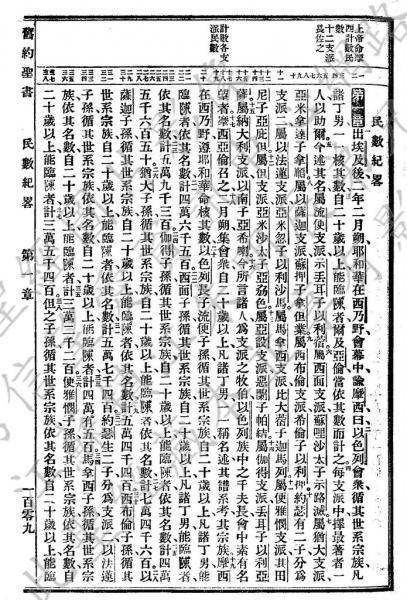 民數紀畧
上帝命摩
西計數民
數
十二支派
長佐之
計數各支
派民數
第一章 出埃及後二年二月朔耶和華在西乃野會幕中諭摩西曰以色列會衆循其世系宗族凡
諸丁男一一核其數自二十歲以上能臨陳者爾及亞倫當依其數而計之每支派中擇最著者一
人以助爾今述其名屬流便支派示丟耳子以利蓿屬西面支派蘇哩沙太子示路滅屬猶大支派
亞米拿達子拿順屬以薩迦支派蘇押子拿但業屬西布倫支派希倫子以利押約瑟有二子分爲
支派二屬以法蓮支派亞米忽子以利沙馬屬馬拿西支派比大蓿子迦馬列屬便雅憫支派其田
尼子亞庇但屬但支派亞米沙太子亞屬亞設支派惡闌子帕結屬伽得支派丟耳子以利亞
薩屬納大利支派以南子亞希喇今所言諸人爲支派之牧伯以色列族中之千夫長會中素有名
望者摩西亞倫召之二月朔集會衆自二十歲以上凡諸丁男一一稱名述其譜系考其宗族摩西
在西乃野遵耶和華命核其數以色列長子流便子孫循其世系宗族自二十歲以上凡諸丁男能
臨陳者依其名數計四萬六千五百西面子孫循其世系宗族自二十歲以上凡諸丁男能臨陳者
依其名數計五萬九千三百伽得子孫循其世系宗族自二十歲以上能臨陳者依其名數計四萬
五千六百五十猶大子孫循其世系宗族自二十歲以上能臨陳者依其名數計七萬四千六百以
薩迦子孫循其世系宗族自二十歲以上能臨陳者依其名數計五萬四千四百西布倫子孫循其
世系宗族自二十歲以上能臨陳者依其名數計五萬七千四百約瑟生二子分爲支派二以法蓮
子孫循其世系宗族自二十歲以上能臨陳者依其名數計四萬有五百馬拿西子孫循其世系宗
族依其名數自二十歲以上能臨陳者計三萬二千二百便雅憫子孫循其世系宗族依其名數自
二十歲以上能臨陳者計三萬五千四百但之子孫循其世系宗族依其名數自
舊約聖書 民數紀畧 第一章 一百零九